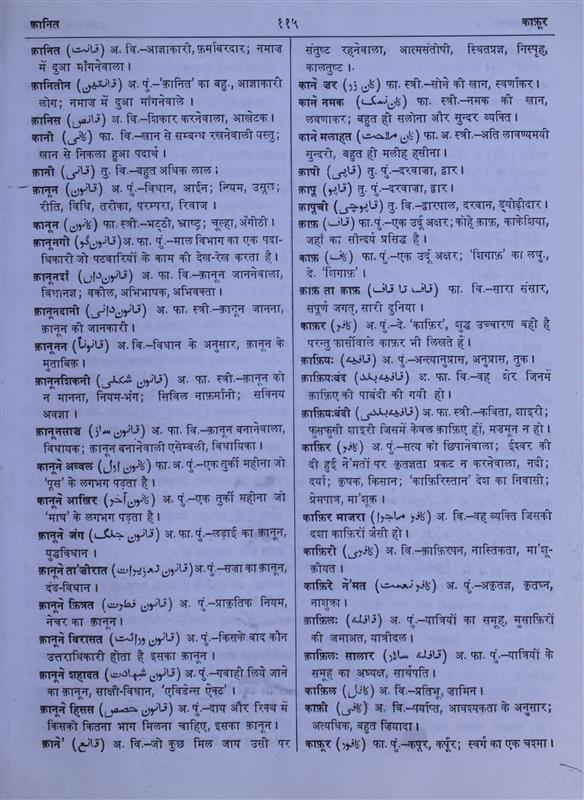 क़ानित
११५
काफ़ूर
क़ानित (قانت) अ. वि.–आज्ञाकारी, फ़र्माबरदार; नमाज़
में दुआ माँगनेवाला।
क़ानितीन (قانتین) अ. पुं.–‘क़ानित’ का बहु., आज्ञाकारी
लोग; नमाज़ में दुआ माँगनेवाले।
क़ानिस (قانص) अ. वि.–शिकार करनेवाला, आखेटक।
कानी (کانی) फा. वि.–खान से सम्बन्ध रखनेवाली वस्तु;
खान से निकला हुआ पदार्थ।
क़ानी (قانی) तु. वि.–बहुत अधिक लाल;
क़ानून (قانون) अ. पुं.–विधान, आईन; नियम, उसूल;
रीति, विधि, तरीक़ा, परम्परा, रिवाज।
कानून (کانون) फा. स्त्री.–भट्ठी, भ्राष्ट्र; चूल्हा, अँगीठी।
क़ानूनगो (قانون گو) अ. फा. पुं.–माल विभाग का एक पदा-
धिकारी जो पटवारियों के काम की देख-रेख करता है।
क़ानूनदाँ (قانون داں) अ. फा. वि.–क़ानून जाननेवाला,
विधानज्ञ; वकील, अभिभाषक, अभिवक्ता।
क़ानूनदानी (قانون دانی) अ. फा. स्त्री.–क़ानून जानना,
क़ानून की जानकारी।
क़ानूनन (قانوناً) अ. वि.–विधान के अनुसार, क़ानून के
मुताबिक़।
क़ानूनशिकनी (قانون شکنی) अ. फा. स्त्री.–क़ानून को
न मानना, नियम-भंग; सिविल नाफ़र्मानी; सविनय
अवज्ञा।
क़ानूनसाज़ (قانون ساز) अ. फा. वि.–क़ानून बनानेवाला,
विधायक; क़ानून बनानेवाली एसेम्बली, विधायिका।
कानूने अव्वल (کانون اول) फा. अ. पुं.–एक तुर्की महीना जो
‘पूस’ के लगभग पड़ता है।
कानूने आख़िर (کانون آخر) अ. पुं.–एक तुर्की महीना जो
‘माघ’ के लगभग पड़ता है।
क़ानूने जंग (قانون جنگ) अ. फा. पुं.–लड़ाई का क़ानून,
युद्धविधान।
क़ानूने ता’ज़ीरात (قانون تعزیرات) अ. पुं.–सज़ा का क़ानून,
दंड-विधान।
क़ानूने फ़ित्रत (قانون فطرت) अ. पुं.–प्राकृतिक नियम,
नेचर का क़ानून।
क़ानूने विरासत (قانون وراثت) अ. पुं.–किसके बाद कौन
उत्तराधिकारी होता है इसका क़ानून।
क़ानूने शहादत (قانون شهادت) अ. पुं.–गवाही लिये जाने
का क़ानून, साक्षी-विधान, ‘एविडेन्स ऐक्ट’।
क़ानूने हिसस (قانون حصص) अ. पुं.–दाय और रिक्थ में
किसको कितना भाग मिलना चाहिए, इसका क़ानून।
क़ाने’ (قانع) अ. वि.–जो कुछ मिल जाय उसी पर
संतुष्ट रहनेवाला, आत्मसंतोषी, स्थितप्रज्ञ, निस्पृह,
कालतुष्ट।
काने ज़र (کان زر) फा. स्त्री.–सोने की खान, स्वर्णाकर।
काने नमक (کان نمک) फा. स्त्री.–नमक की खान,
लवणाकर; बहुत ही सलोना और सुन्दर व्यक्ति।
काने मलाहत (کان ملاحت) फा. अ. स्त्री.–अति लावण्यमयी
सुन्दरी, बहुत ही मलीह हसीना।
क़ापी (قاپی) तु. पुं.–दरवाज़ा, द्वार।
क़ापू (قاپو) तु. पुं.–दरवाज़ा, द्वार।
क़ापूची (قاپوچی) तु. वि.–द्वारपाल, दरवान, ड्योढ़ीदार।
क़ाफ़ (قاف) फा. पुं.–एक उर्दू अक्षर; कोहे क़ाफ़, काकेशिया,
जहाँ का सौन्दर्य प्रसिद्ध है।
काफ़ (کاف) फा. पुं.–एक उर्दू अक्षर; ‘शिगाफ़’ का लघु.,
दे. ‘शिगाफ़’।
क़ाफ़ ता क़ाफ़ (قاف تا قاف) फा. वि.–सारा संसार,
संपूर्ण जगत्, सारी दुनिया।
काफ़र (کافر) अ. पुं.–दे. ‘काफ़िर’, शुद्ध उच्चारण वही है
परन्तु फ़ार्सीवाले काफ़र भी लिखते हैं।
क़ाफ़ियः (قافیه) अ. पुं.–अन्त्यानुप्रास, अनुप्रास, तुक।
क़ाफ़ियःबंद (قافیه بند) अ. फा. वि.–वह शेर जिनमें
क़ाफ़िए की पाबंदी की गयी हो।
क़ाफ़ियःबंदी (قافیه بندی) अ. फा. स्त्री.–कविता, शाइरी;
फुसफुसी शाइरी जिसमें केवल क़ाफ़िए हों, मज़्मून न हो।
काफ़िर (کافر) अ. पुं.–सत्य को छिपानेवाला; ईश्वर की
दी हुई ने’मतों पर कृतज्ञता प्रकट न करनेवाला, नदी;
दर्या; कृषक, किसान; ‘काफ़िरिस्तान’ देश का निवासी;
प्रेमपात्र, मा’शूक़।
काफ़िर माजरा (کافر ماجرا) अ. वि.–वह व्यक्ति जिसकी
दशा काफ़िरों जैसी हो।
काफ़िरी (کافری) अ. वि.–काफ़िरपन, नास्तिकता, मा’शू-
क़ीयत।
काफ़िरे ने’मत (کافر نعمت) अ. पुं.–अकृतज्ञ, कृतघ्न,
नाशुक्रा।
क़ाफ़िलः (قافله) अ. पुं.–यात्रियों का समूह, मुसाफ़िरों
की जमाअत, यात्रीदल।
क़ाफ़िलः सालार (قافله سالار) अ. फा. पुं.–यात्रियों के
समूह का अध्यक्ष, सार्थपति।
काफ़िल (کافل) अ. वि.–प्रतिभू, ज़ामिन।
काफ़ी (کافی) अ. वि.–पर्याप्त, आवश्यकता के अनुसार;
अत्यधिक, बहुत ज़ियादा।
काफ़ूर (کافور) फा. पुं.–कपूर, कर्पूर; स्वर्ग का एक चश्मा।